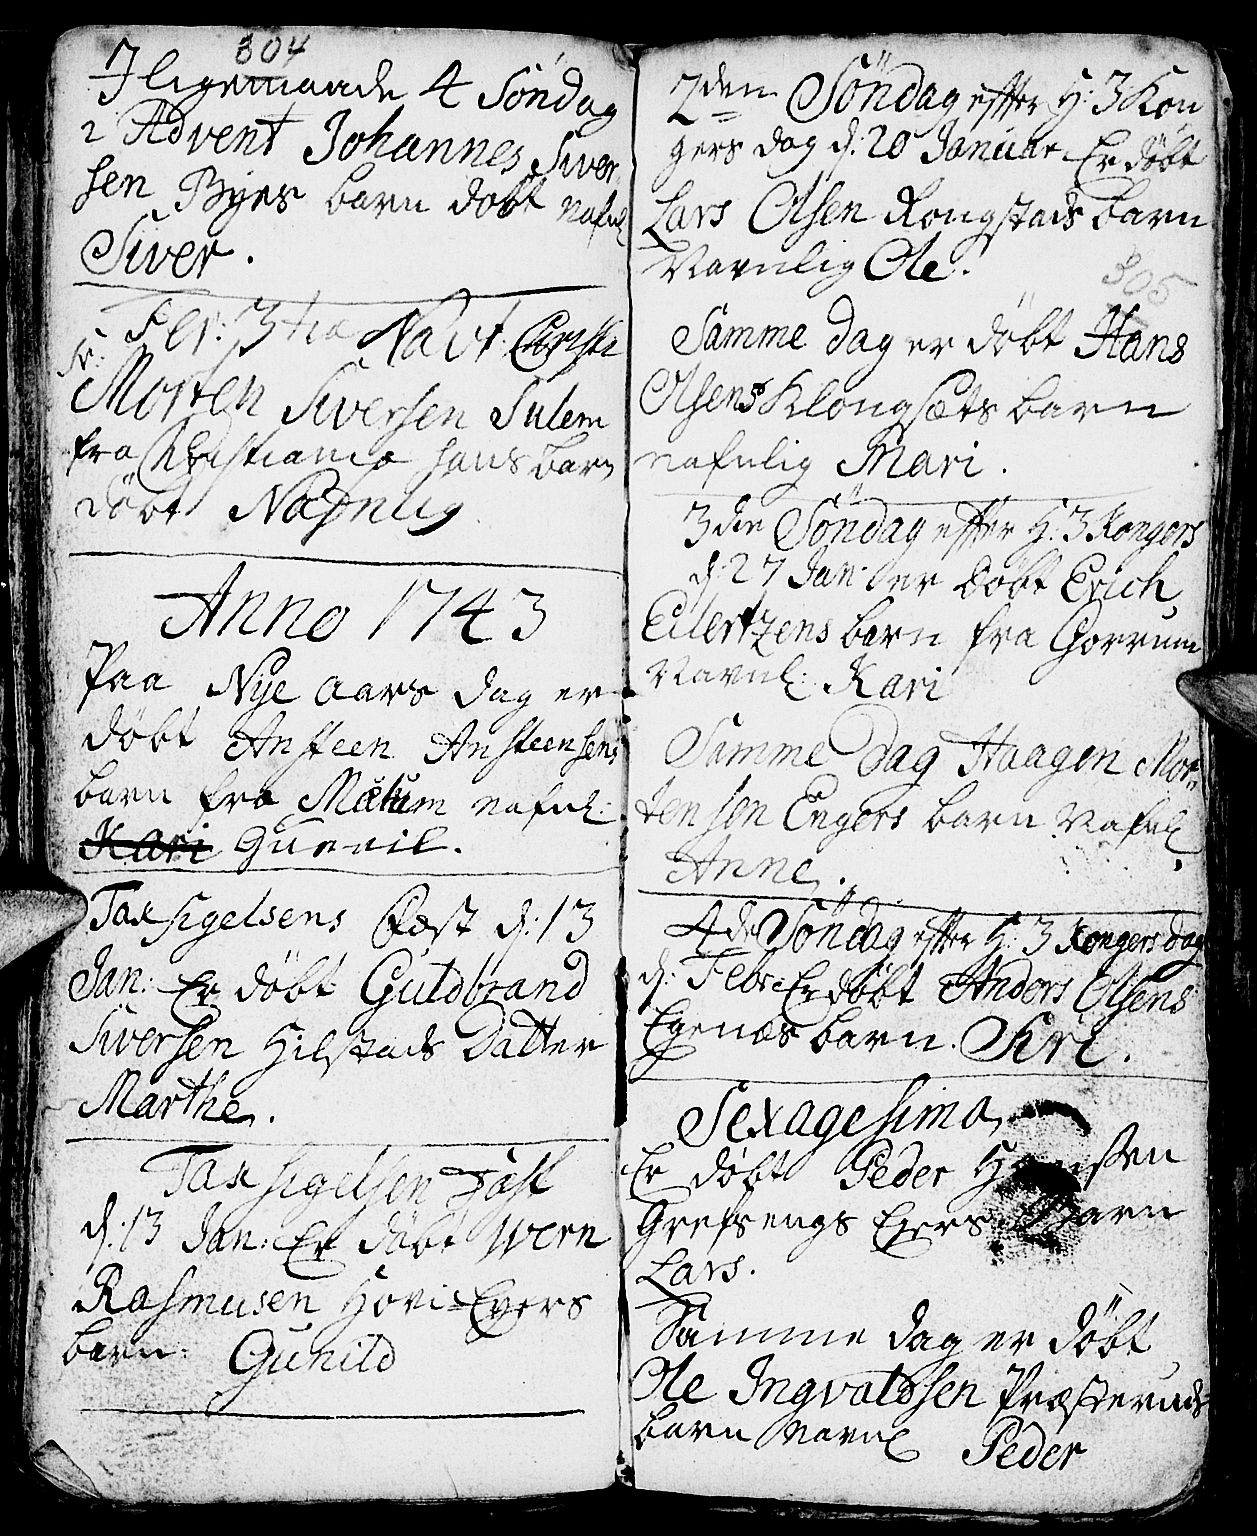 304
I ligemaade 4 Söndag
i Advent Johannes Siver
sen Byes barn döbt nafnl
Siver.
Fer: 3tia Nativt Christi
Sr:
Morten Siversen Sulem
fra Christiania hans barn
döbt Nafnlig
Anno 1743
Paa Nye aars dag er
döbt Ansteen Ansteensens
barn fra Mælum nafnl:
Kari Gunnil.
Taxsigelsens Fæst d: 13
Jan: Er döbt Guldbrand
Siversen Hilstads Datter
Marthe.
Taxsigelsen Fäst
d: 13 Jan: Er döbt Ivern
Rasmusen Hovi-Eyers
barn: Gunild
2den Söndag effter H: 3 Kon
gers dag d: 20 Januar Er döbt
Lars Olsen Rongstads barn
Navnlig Ole.
305
Samme dag er döbt Hans
Olsens Klongsæts barn
nafnlig Mari.
3die Söndag effter H: 3 Kongers
d: 27 Jan: er döbt Erich
Eilertzens barn fra Gorrum
Navnl: Kari
Samme Dag Haagen Mor
tensen Engers barn Nafnl
Anne.
4de Söndag effter H: 3 Kongers dag
d: Febr: Er döbt Anders Olsens
Egenæs barn. Siri.
Sexagesima,
Er döbt Peder
Grefsengs Eyers Barn
Lars.
Samme dag er döbt
Ole Ingvaldsen Præsteruds
barn navnl Peder